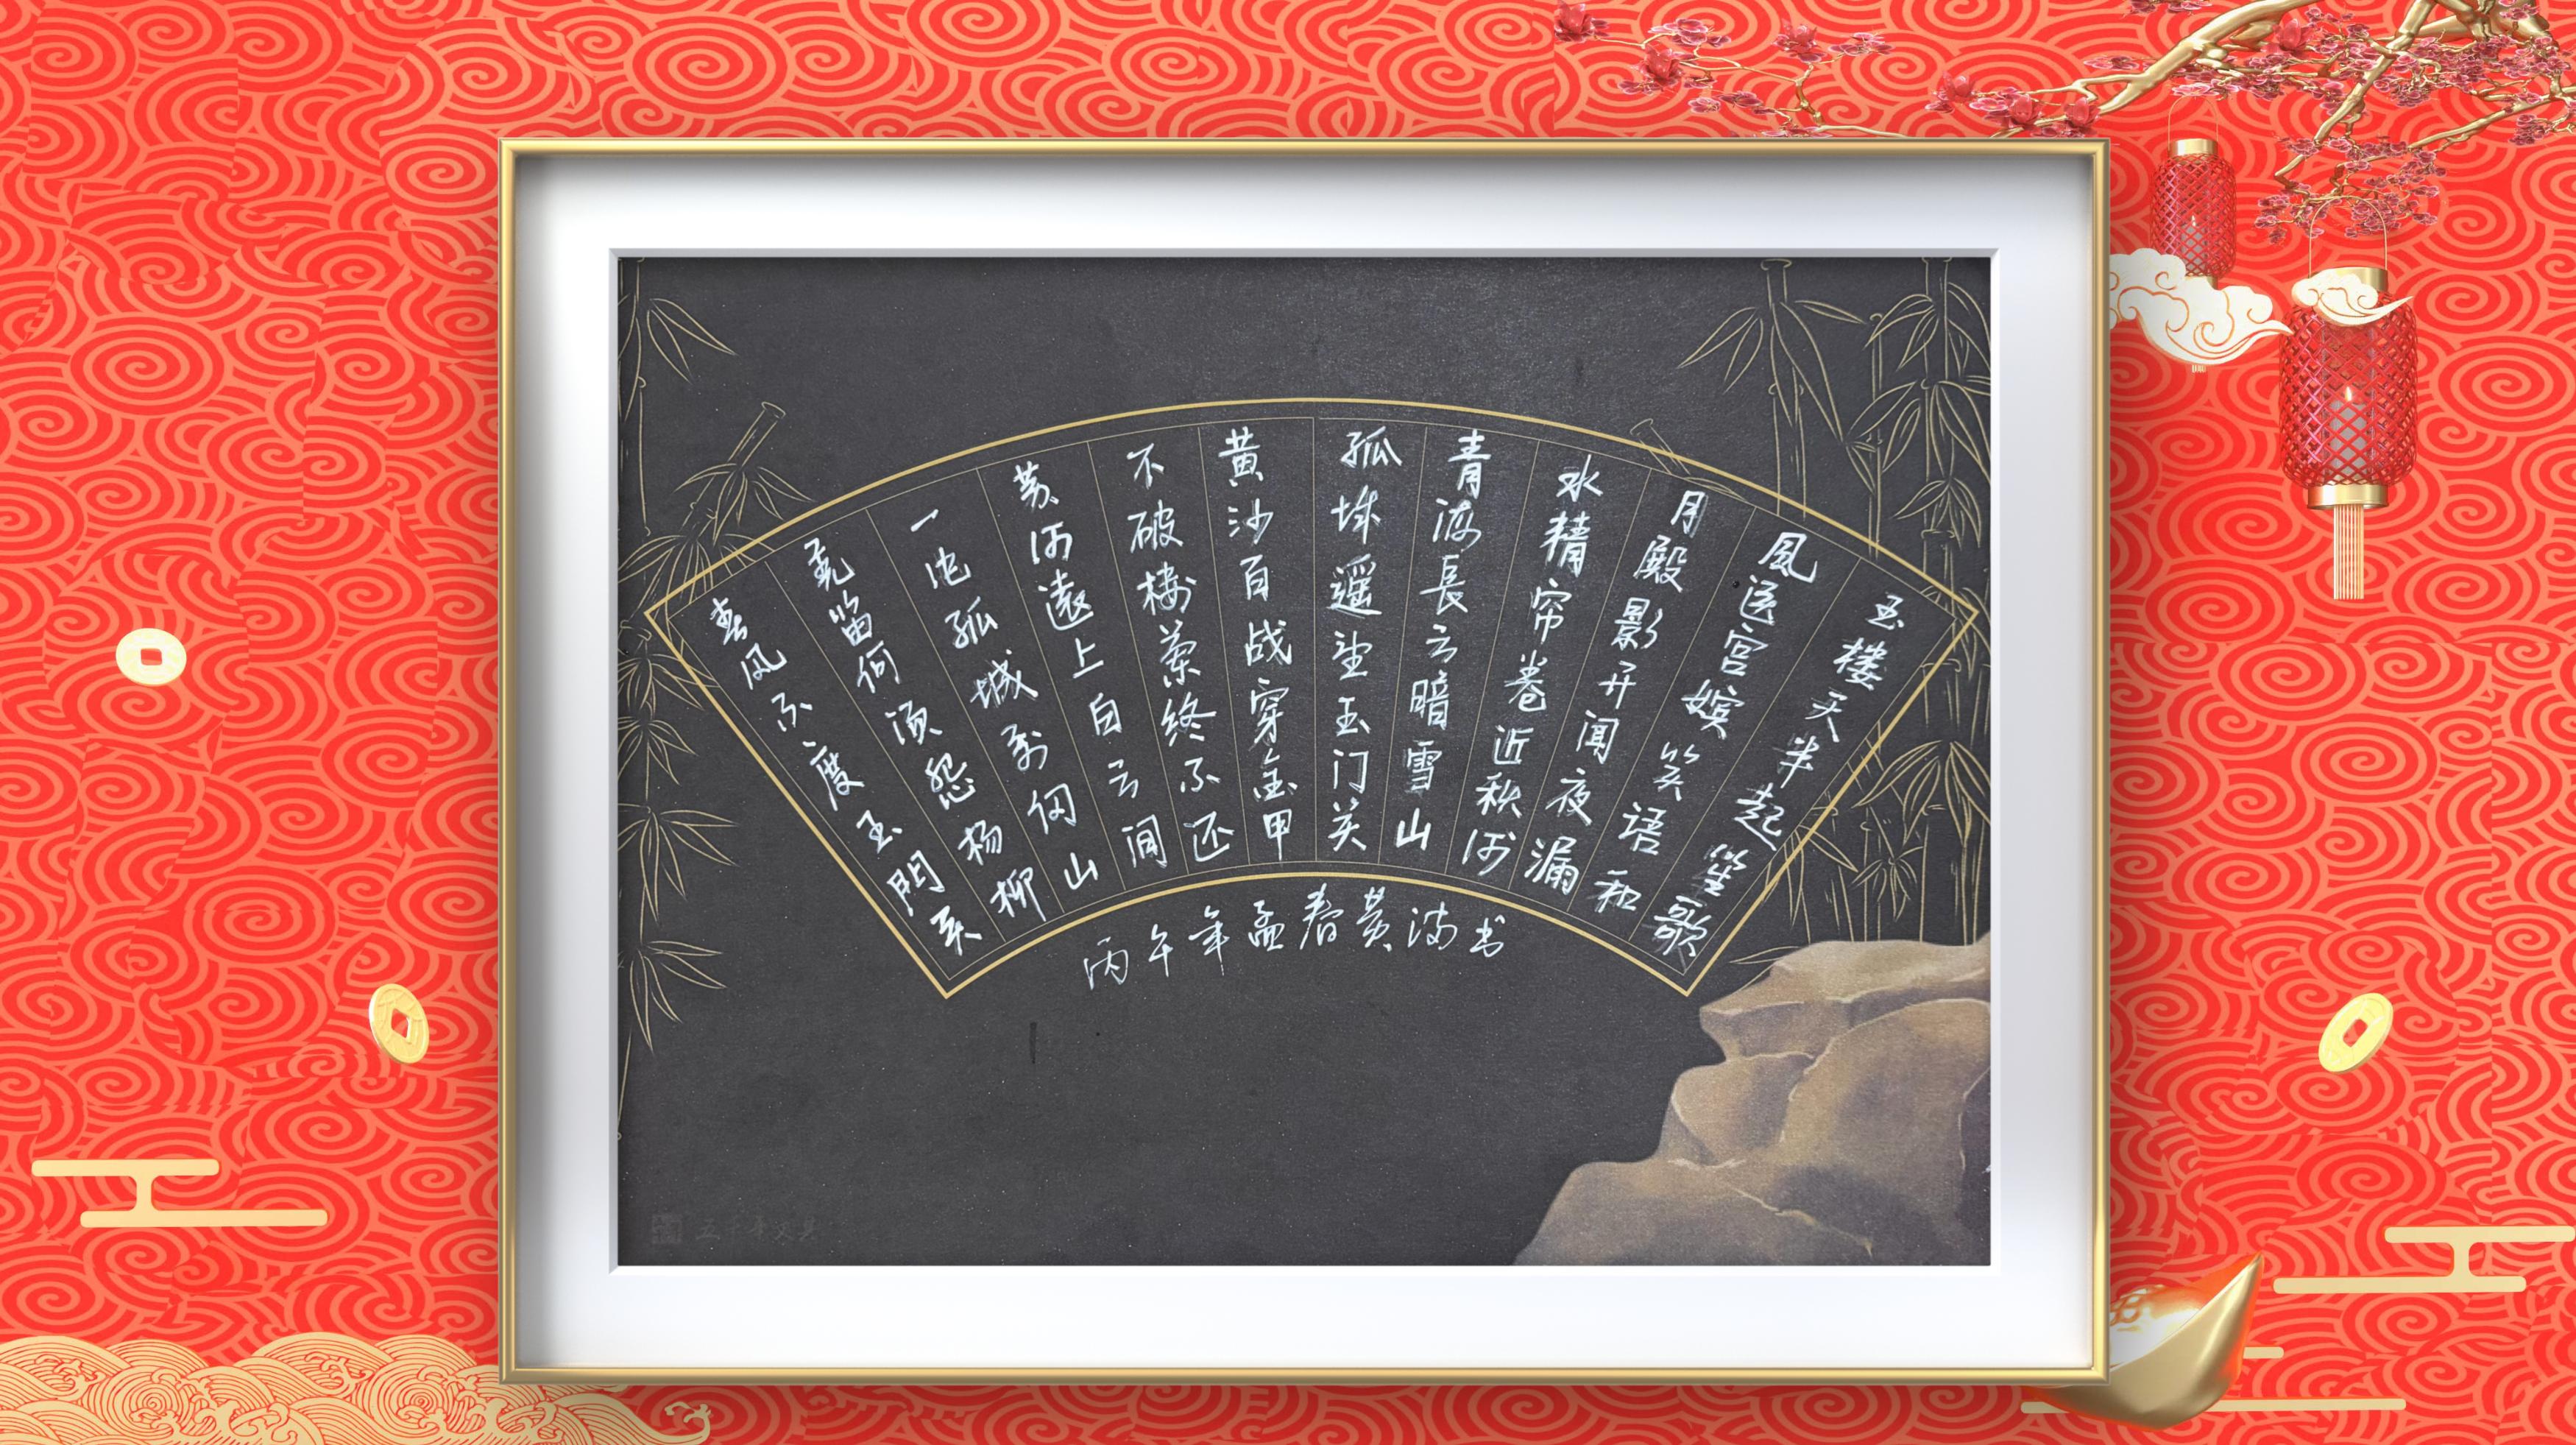 玉楼天半起笙歌
風送宫嫔笑语和
月殿影开闻夜漏
水精帘卷近秋河
青海長云暗雪山
孤城遥望玉门关
黄沙百战穿金甲
不破楼兰终不还
黄河遠上白云间
一片孤城万仞山
羌笛何须怨杨柳
春风不度玉門关
丙午年孟春黄书
五千年文具